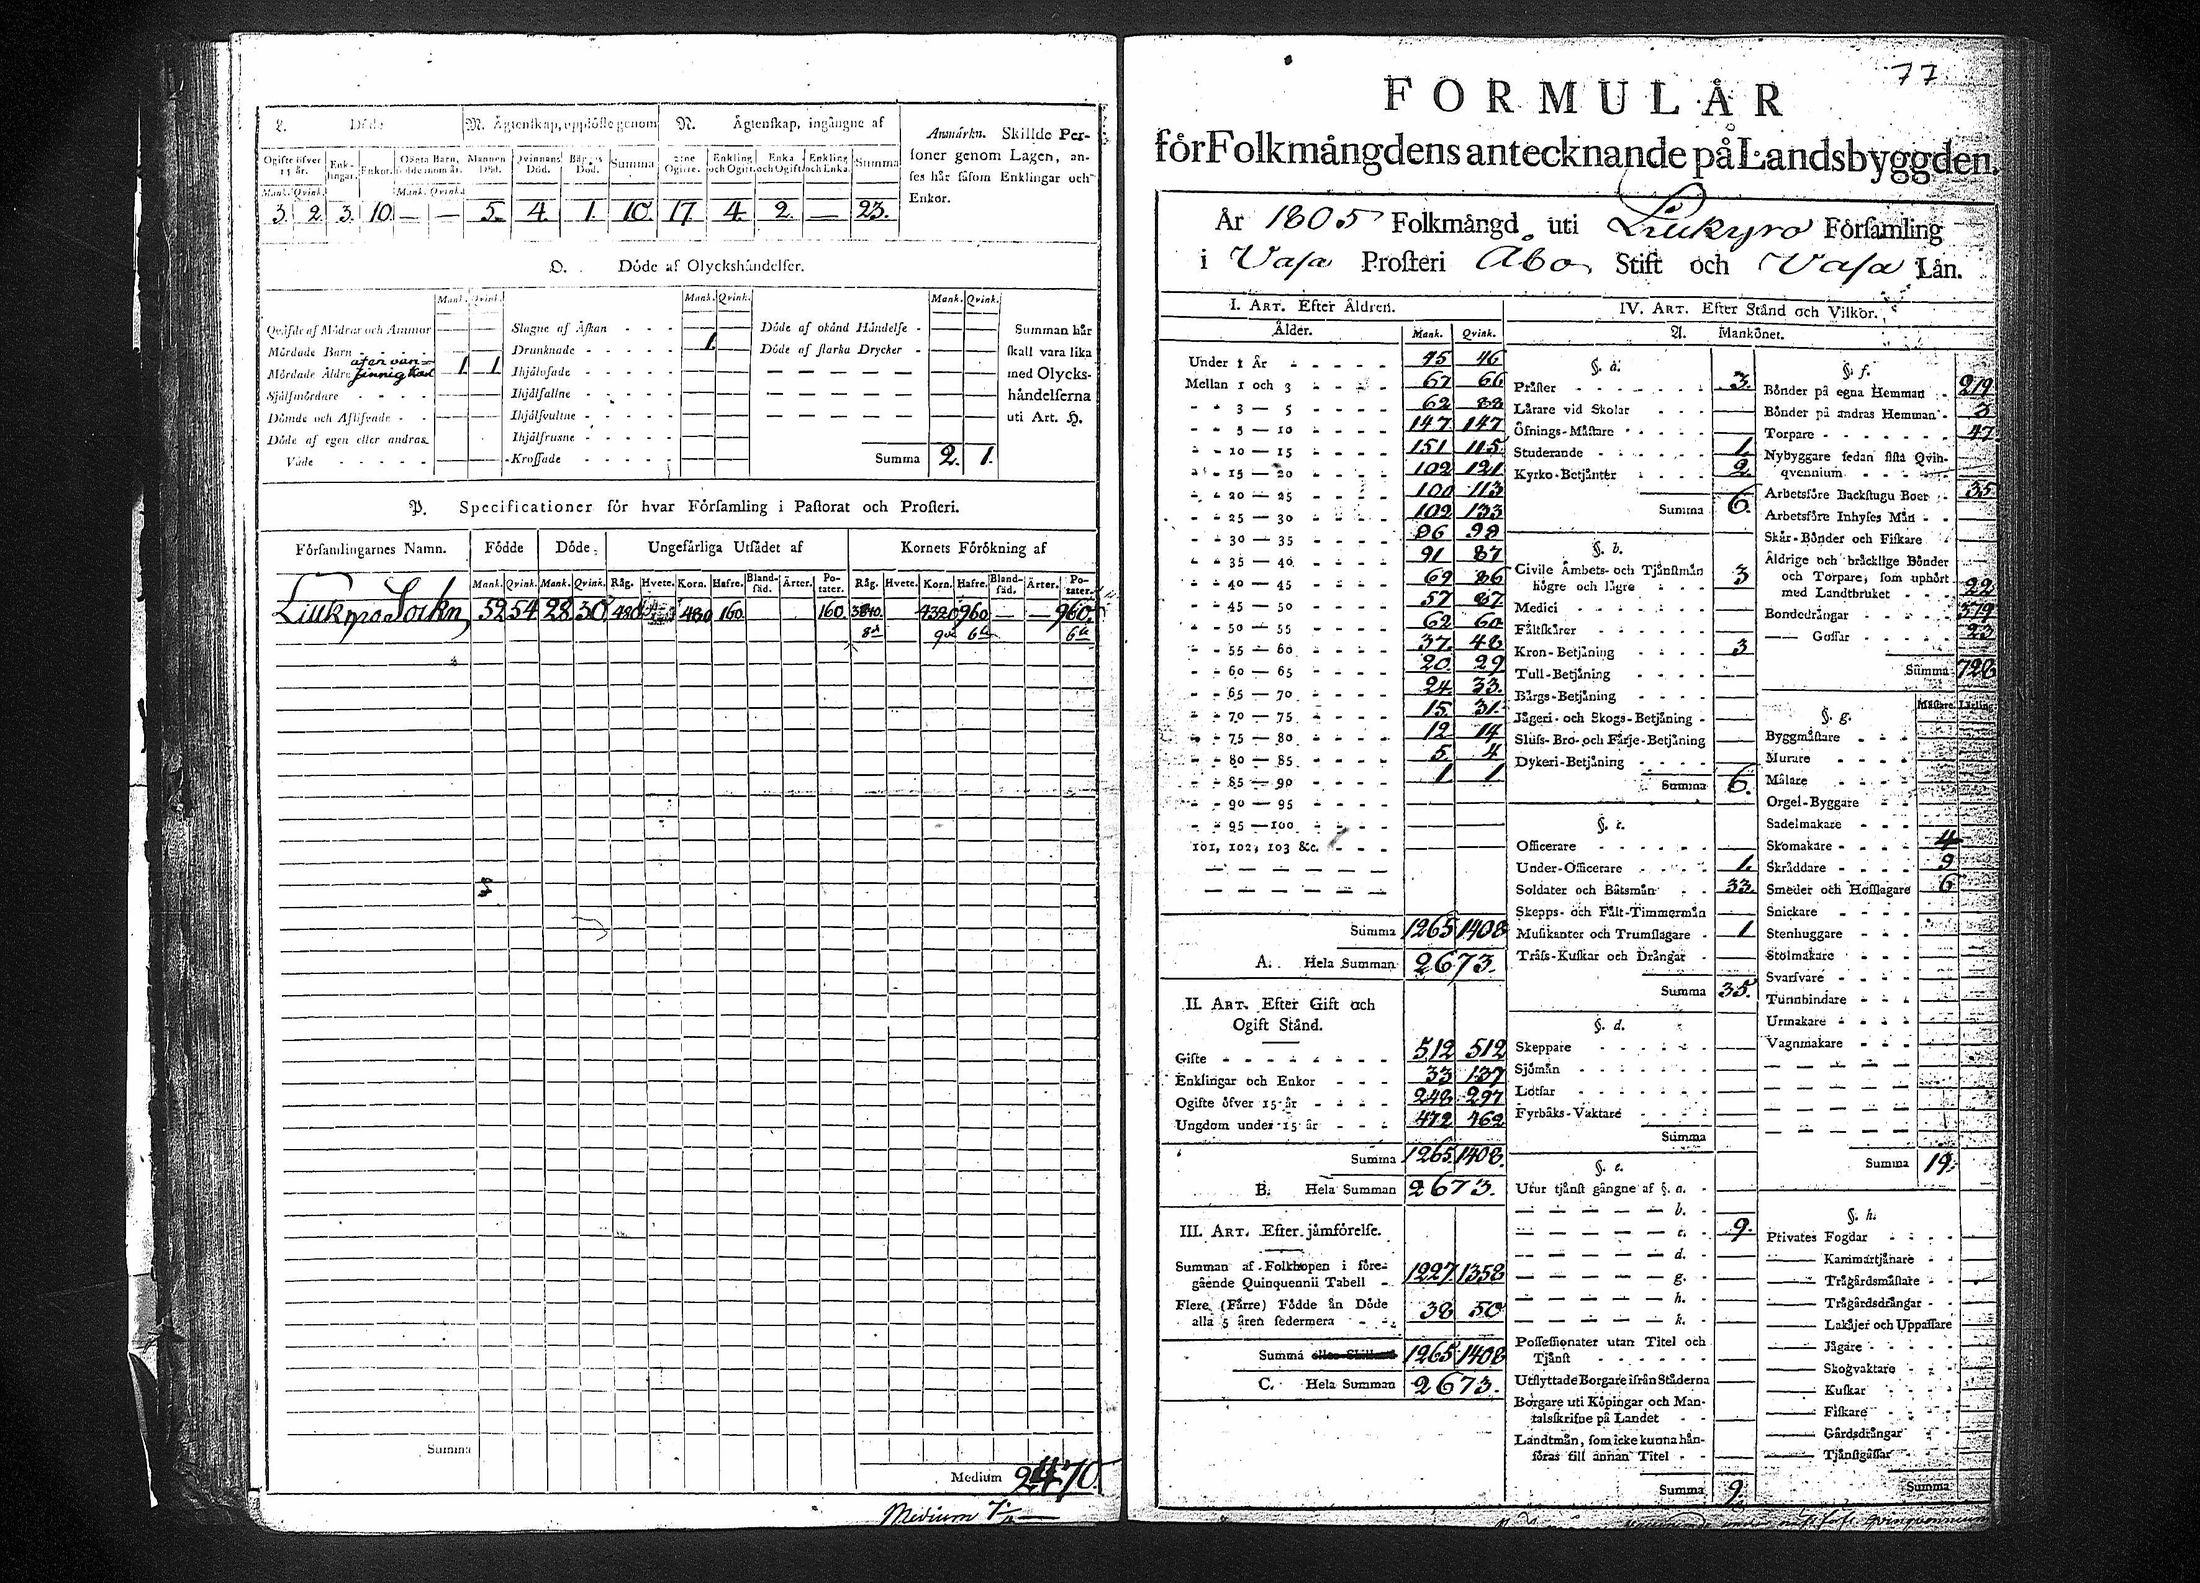 L. Döde
M. Ägtenskap, upplöste genom
N. Ägtenskap, ingångne af
Anmärkn. Skillde Per-
soner genom Lagen, an-
ses här såsom Enklingar och
Enkor.
Ogifte öfver 15 år. Enk-lingar. Enkor. Oägta Barn, födde inom år. Mannen Död. Qvinnans Död. Bägges Död. Summa Ogifte. Enkling och Ogift. Enka och Ogift. Enkling och Enka. Summa
Mank. Qvink. Mank. Qvink.
3. 2. 3. 10. — — 5. 4. 1. 10. 17. 4. 2. — 23.
O. Döde af Olyckshändelser.
Mank. Qvink. Mank. Qvink. Mank. Qvink.
Qväfde af Mödrar och Ammor — — Slagne af Åskan - - - — — Döde af okänd Händelse - — — Summan här
Mördade Barn — — Drunknade - - - - - 1. — Döde af starka Drycker - — — skall vara lika
Mördade Äldre 1. 1 Ihjälosade - - - - — — med Olycks-
Självmördare - - - - Ihjälfallne - - - - händelserna
Dömde och Aflifvade - - Ihjälsvultne - - - - uti Art. H.
Döde af egen eller andras Ihjälfrusne - - - -
Våde - - - - - Krossade - - - - Summa 2. 1.
P. Specificationer för hvar Församling i Pastorat och Prosteri.
Församlingarnes Namn. Födde Döde. Ungefärliga Utsädet af Kornets Förökning af
Mank. Qvink. Mank. Qvink. Råg. Hvete. Korn. Hafre. Bland-säd. Ärter. Po-tater. Råg. Hvete. Korn. Hafre. Bland-säd. Ärter. Po-tater.
Liukyro Sockn 52 54 28 30. 480 480 160. 160. 3840. — 4320 960. — — 960.
Summa
Medium
Medium
77
FORMULÄR
för Folkmängdens antecknande på Landsbyggden.
År 1805 Folkmängd uti Liukyro Församling
i Vasa Prosteri Åbo Stift och Vasa Län.
I. ART. Efter Åldren.
Ålder. Mank. Qvink.
Under 1 År - - - - - 45 46
Mellan 1 och 3 - - - - 67 66
- - 3 — 5 - - - - 62 88
- - 5 — 10 - - - - 147 147
- - 10 — 15 - - - - 151 115
- - 15 — 20 - - - - 102 121
- - 20 — 25 - - - - 100 113
- - 25 — 30 - - - - 102 133
- - 30 — 35 - - - - 96 98
- - 35 — 40 - - - - 91 87
- - 40 — 45 - - - - 69 86
- - 45 — 50 - - - - 57 87
- - 50 — 55 - - - - 62 60
- - 55 — 60 - - - - 37. 48
- - 60 — 65 - - - - 20. 29
- - 65 — 70 - - - - 24. 33.
- - 70 — 75 - - - - 15. 31.
- - 75 — 80 - - - - 12 14
- - 80 — 85 - - - - 5. 4
- - 85 — 90 - - - - 1 1
- - 90 — 95 - - - - — —
- - 95 — 100 - - - - — —
101, 102, 103 &c. - - - — —
Summa 1265 1408
A. Hela Summan 2673.
II. ART. Efter Gift och
Ogift Stånd.
Gifte - - - - - - - 512 512
Enklingar och Enkor - - - 33 137
Ogifte öfver 15 år - - - - 248 297
Ungdom under 15 år - - - 472 462
Summa 1265 1408.
B. Hela Summan 2673.
III. ART. Efter jämförelse.
Summan af Folkhopen i före-
gående Quinquennii Tabell - 1227. 1358
Flere (Färre) Födde än Döde
alla 5 åren sedermera - - 38 50
Summa 1265 1408
C. Hela Summan 2673.
IV. ART. Efter Stånd och Vilkor.
A. Mankönet.
§. a.
Präster - - - - - - - 3.
Lärare vid Skolar - - - —
Öfnings-Mästare - - - - —
Studerande - - - - - 1.
Kyrko-Betjänter - - - 2.
Summa 6.
§. b.
Civile Ämbets- och Tjänstmän
högre och lägre - - - 3
Medici - - - - - - —
Fältskärer - - - - - —
Kron-Betjäning - - - - 3
Tull-Betjäning - - - - —
Bärgs-Betjäning - - - - —
Jägeri- och Skogs-Betjäning - —
Slüss- Bro- och Färje-Betjäning —
Dykeri-Betjäning - - - - —
Summa 6.
§. c.
Officerare - - - - - - —
Under-Officerare - - - - 1.
Soldater och Båtsmän - - 33.
Skepps- och Fält-Timmermän —
Musikanter och Trumslagare - 1
Träss-Kuskar och Drängar - —
Summa 35.
§. d.
Skeppare - - - - -
Sjömän - - - - - -
Lotsar - - - - - -
Fyrbåks-Vaktare - - - -
Summa
§. e.
Utur tjänst gångne af §. a. -
— — — — — b. -
— — — — — c. - 9.
— — — — — d. -
— — — — — g. -
— — — — — h. -
— — — — — k. -
Possessionater utan Titel och
Tjänst - - - - - -
Utflyttade Borgare ifrån Städerna
Borgare uti Köpingar och Man-
talsskrifne på Landet - -
Landtmän, som icke kunna hän-
föras till annan Titel - -
Summa 9.
§. f.
Bönder på egna Hemman - 219
Bönder på andras Hemman - 3
Torpare - - - - - - 47.
Nybyggare sedan sista Qvin-
qvennium - - - - - —
Arbetsföre Backstugu Boer - 35
Arbetsföre Inhyses Män - - —
Skär-Bönder och Fiskare - —
Äldrige och bräcklige Bönder
och Torpare, som uphört
med Landtbruket - - - 22
Bondedrängar - - - - 379
—— Gossar - - - - - 23
Summa 728.
§. g. Mästare. Lärling.
Byggmästare - - -
Murare - - - -
Målare - - - -
Orgel-Byggare - -
Sadelmakare - - -
Skomakare - - - 4
Skräddare - - - 9
Smeder och Hofslagare 6
Snickare - - -
Stenhuggare - - -
Stolmakare - - -
Svarfvare - - - -
Tunnbindare - - -
Urmakare - - - -
Vagnmakare - - -
Summa 19.
§. h.
Privates Fogdar - - - -
—— Kammartjänare - -
—— Trägårdsmästare - -
—— Trägårdsdrängar - -
—— Lakäjer och Uppassare
—— Jägare - - - -
—— Skogvaktare - -
—— Kuskar - - - -
—— Fiskare - - - -
—— Gårdsdrängar - -
—— Tjänstgåssar - -
Summa